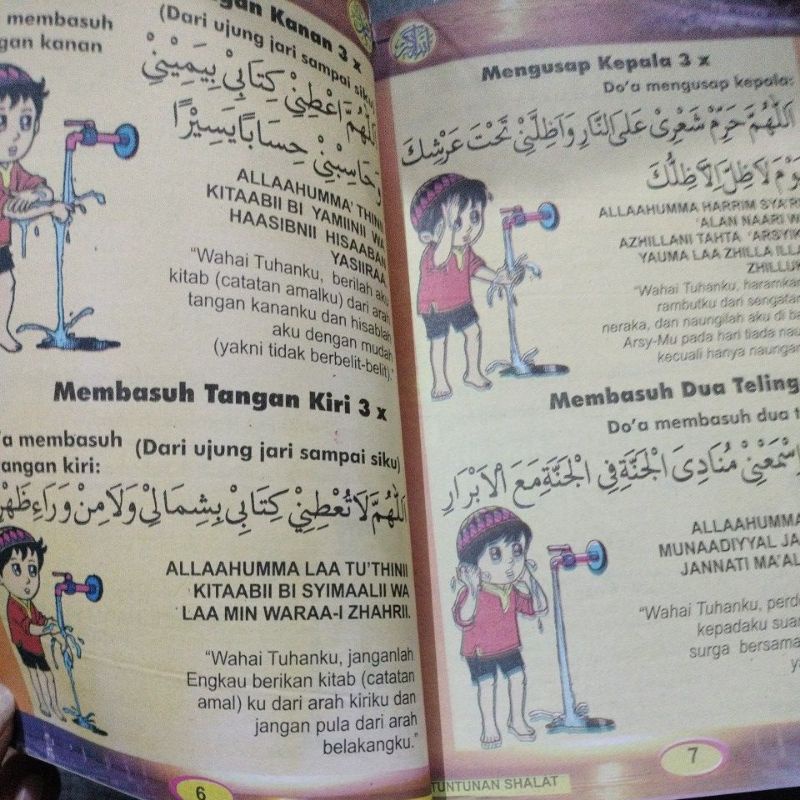 membasuh
kanan
Kanan 3 x
(Dari ujung jari sampai siku)
اَللّٰهُمَّ اَعْطِنِيْ كِتَابِيْ بِيَمِيْنِيْ
وَحَاسِبْنِيْ حِسَابًا يَسِيْرًا
ALLAAHUMMA' THINII
KITAABII BI YAMIINII WA
HAASIBNII HISAABAN
YASIIRAA
"Wahai Tuhanku, berilah aku
kitab (catatan amalku) dari arah
tangan kananku dan hisablah
aku dengan mudah
(yakni tidak berbelit-belit)."
Membasuh Tangan Kiri 3 x
membasuh
tangan kiri:
(Dari ujung jari sampai siku)
اَللّٰهُمَّ لَا تُعْطِنِيْ كِتَابِيْ بِشِمَالِيْ وَلَا مِنْ وَرَاءِ
ALLAAHUMMA LAA TU'THINII
KITAABII BI SYIMAALII WA
LAA MIN WARAA-I ZHAHRII.
"Wahai Tuhanku, janganlah
Engkau berikan kitab (catatan
amal) ku dari arah kiriku dan
jangan pula dari arah
belakangku."
6
Mengusap Kepala 3 x
Do'a mengusap kepala:
اَللّٰهُمَّ حَرِّمْ شَعْرِيْ عَلَى النَّارِ وَاَظِلَّنِيْ تَحْتَ عَرْشِكَ
يَوْمَ لَا ظِلَّ اِلَّا ظِلُّكَ
ALLAAHUMMA HARRIM
'ALAN NAARI
AZHILLANI TAHTA
YAUMA LAA ZHILLA
"Wahai Tuhanku,
rambutku dari
neraka, dan naungilah aku di
Arsy-Mu pada hari tiada
kecuali hanya
Membasuh Dua
Do'a membasuh dua
مُنَادِيَ الْجَنَّةِ فِى الْجَنَّةِ مَعَ الْاَبْرَارِ
ALLAAHUMMA
MUNAADIYYAL
JANNATI
"Wahai Tuhanku,
kepadaku
surga
7
TUNTUNAN SHALAT